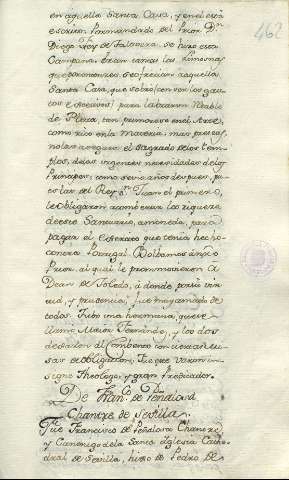 en aquella Santa Casa, y en el está
escrito. Por mandado del Prior Dn
Diego de Talavera, se hizo esta
Campana. Eran tantas las limosnas
que por entonces se ofrecian a aquella
Santa Casa, que sobraron los gas
tos excesivos, para labrar un Retablo
de Plata, tan primoroso en el Arte,
como rico en la materia; mas presto,
no las asegura el sagrado de los tem
plos, de las urgentes necesidades de los
Principes, como se vio años despues, pues
las del Rey Dn. Juan el primero,
le obligaron a convertir las riquezas
de este Santuario, a moneda, para
pagar el Exercito que tenia hecho
contra Portugal. Volvamos a nro
Prior, al qual le promovieron a
Dean de Toledo, a donde por su vir
tud, y prudencia, fue muy amado de
todos. Tubo una hermana, que se
llamó Mayor Fernandez, y los dos
dexaron al Convento con
de obligacion. Fue este varon in
signe Theologo, y gran Predicador.
De Franco. De
Chantre de Sevilla.
Fue Francisco de Chantre,
y Canonigo de la Santa Iglesia Cathe
dral de Sevilla, hijo de Pedro de
462